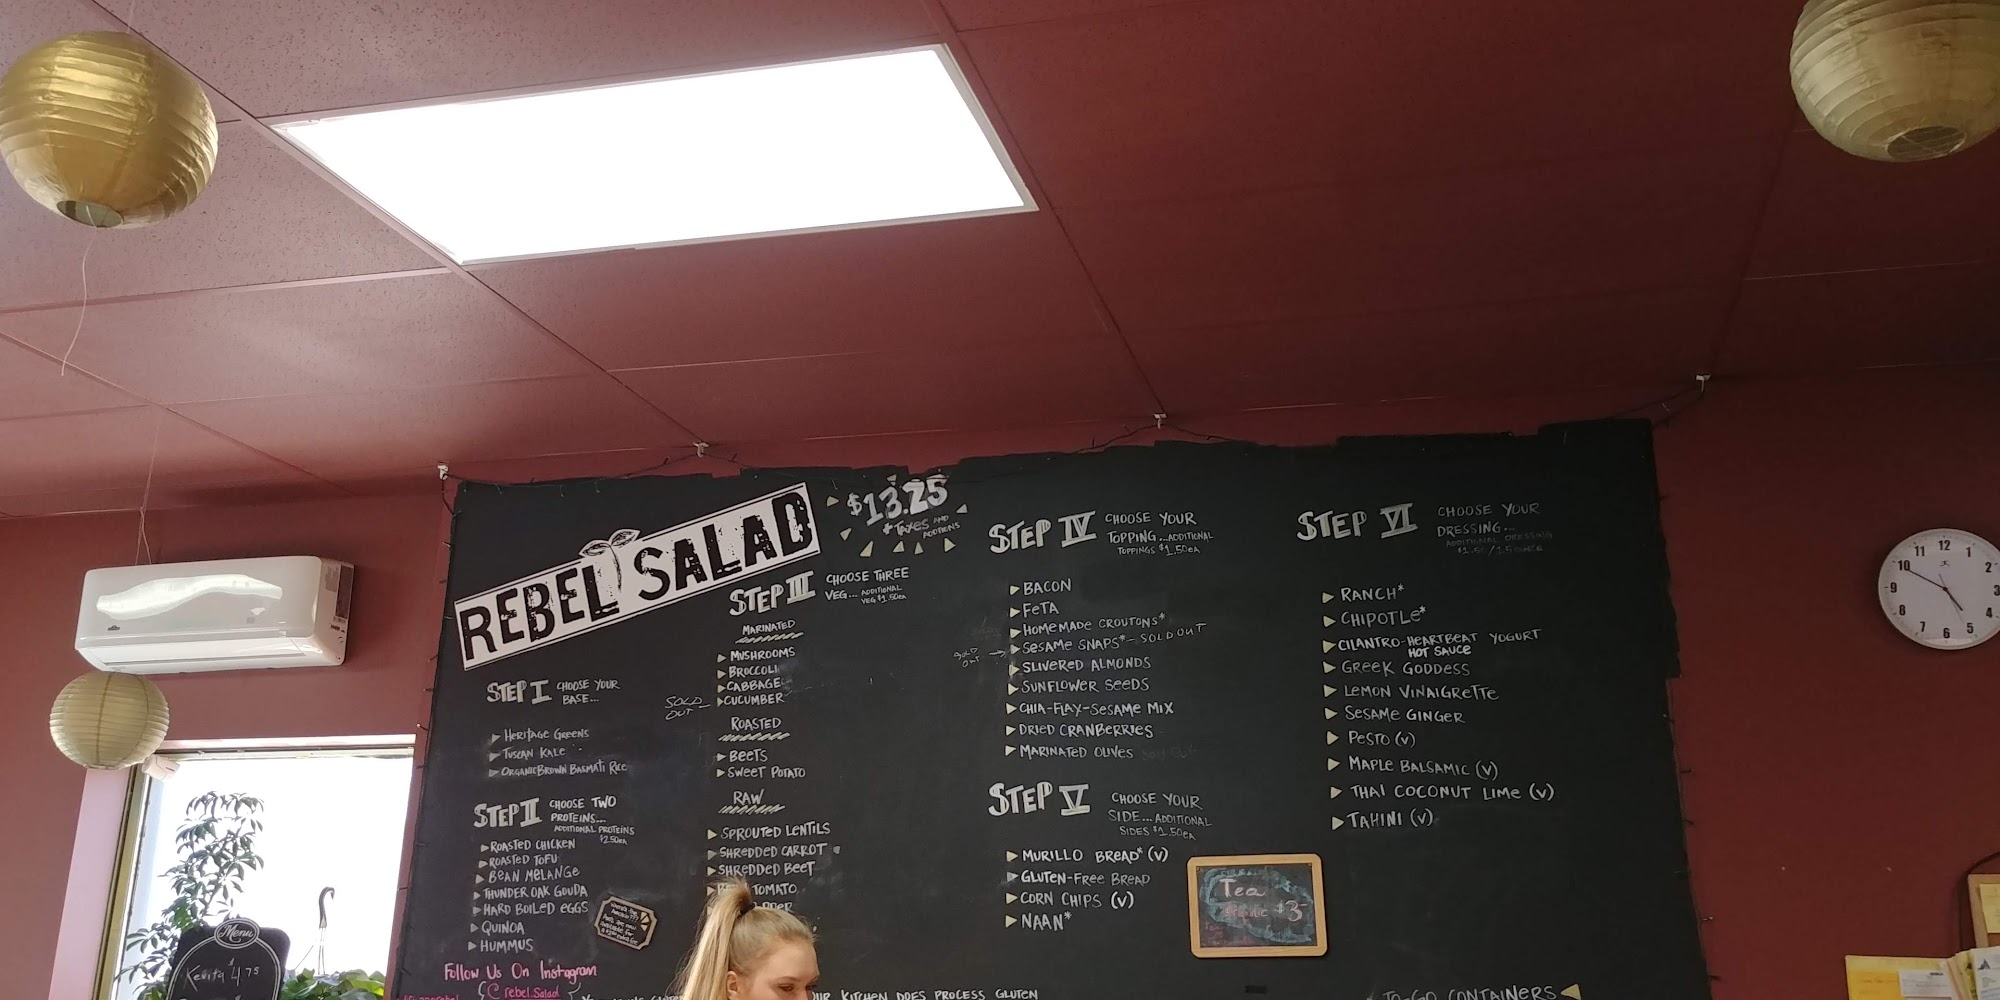 REBEL SALAD
$13.25
+ TAXES AND
ADDITIONS
STEP I CHOOSE YOUR
BASE...
HERITAGE GREENS
TUSCAN KALE
ORGANIC BROWN BASMATI RICE
STEP II CHOOSE TWO
PROTEINS...
ADDITIONAL PROTEINS
$2.50EA
ROASTED CHICKEN
ROASTED TOFU
BEAN MELANGE
THUNDER OAK GOUDA
HARD BOILED EGGS
QUINOA
HUMMUS
Follow Us On Instagram
@rebel.Salad
STEP III CHOOSE THREE
VEG... ADDITIONAL
VEG $1.50EA
MARINATED
MUSHROOMS
BROCCOLI
CABBAGE
CUCUMBER
SOLD
OUT
ROASTED
BEETS
SWEET POTATO
RAW
SPROUTED LENTILS
SHREDDED CARROT
SHREDDED BEET
TOMATO
STEP IV CHOOSE YOUR
TOPPING...ADDITIONAL
TOPPINGS $1.50EA
BACON
FETA
HOMEMADE CROUTONS*
SESAME SNAPS* - SOLD OUT
SOLD
OUT
SLIVERED ALMONDS
SUNFLOWER SEEDS
CHIA-FLAX-SESAME MIX
DRIED CRANBERRIES
MARINATED OLIVES
STEP V CHOOSE YOUR
SIDE...ADDITIONAL
SIDES $1.50EA
MURILLO BREAD* (V)
GLUTEN-FREE BREAD
CORN CHIPS (V)
NAAN*
STEP VI CHOOSE YOUR
DRESSING...
ADDITIONAL DRESSING
RANCH*
CHIPOTLE*
CILANTRO-HEARTBEAT YOGURT
HOT SAUCE
GREEK GODDESS
LEMON VINAIGRETTE
SESAME GINGER
PESTO (V)
MAPLE BALSAMIC (V)
THAI COCONUT LIME (V)
TAHINI (V)
Tea
$3-
KITCHEN DOES PROCESS GLUTEN
TO-GO CONTAINERS
Menu
Kevita $4.75
11 12 1
10 2
9 3
8 4
7 6 5